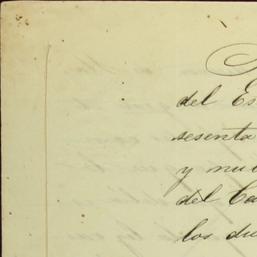 del Es
sesenta
y nu
del Ca
los du